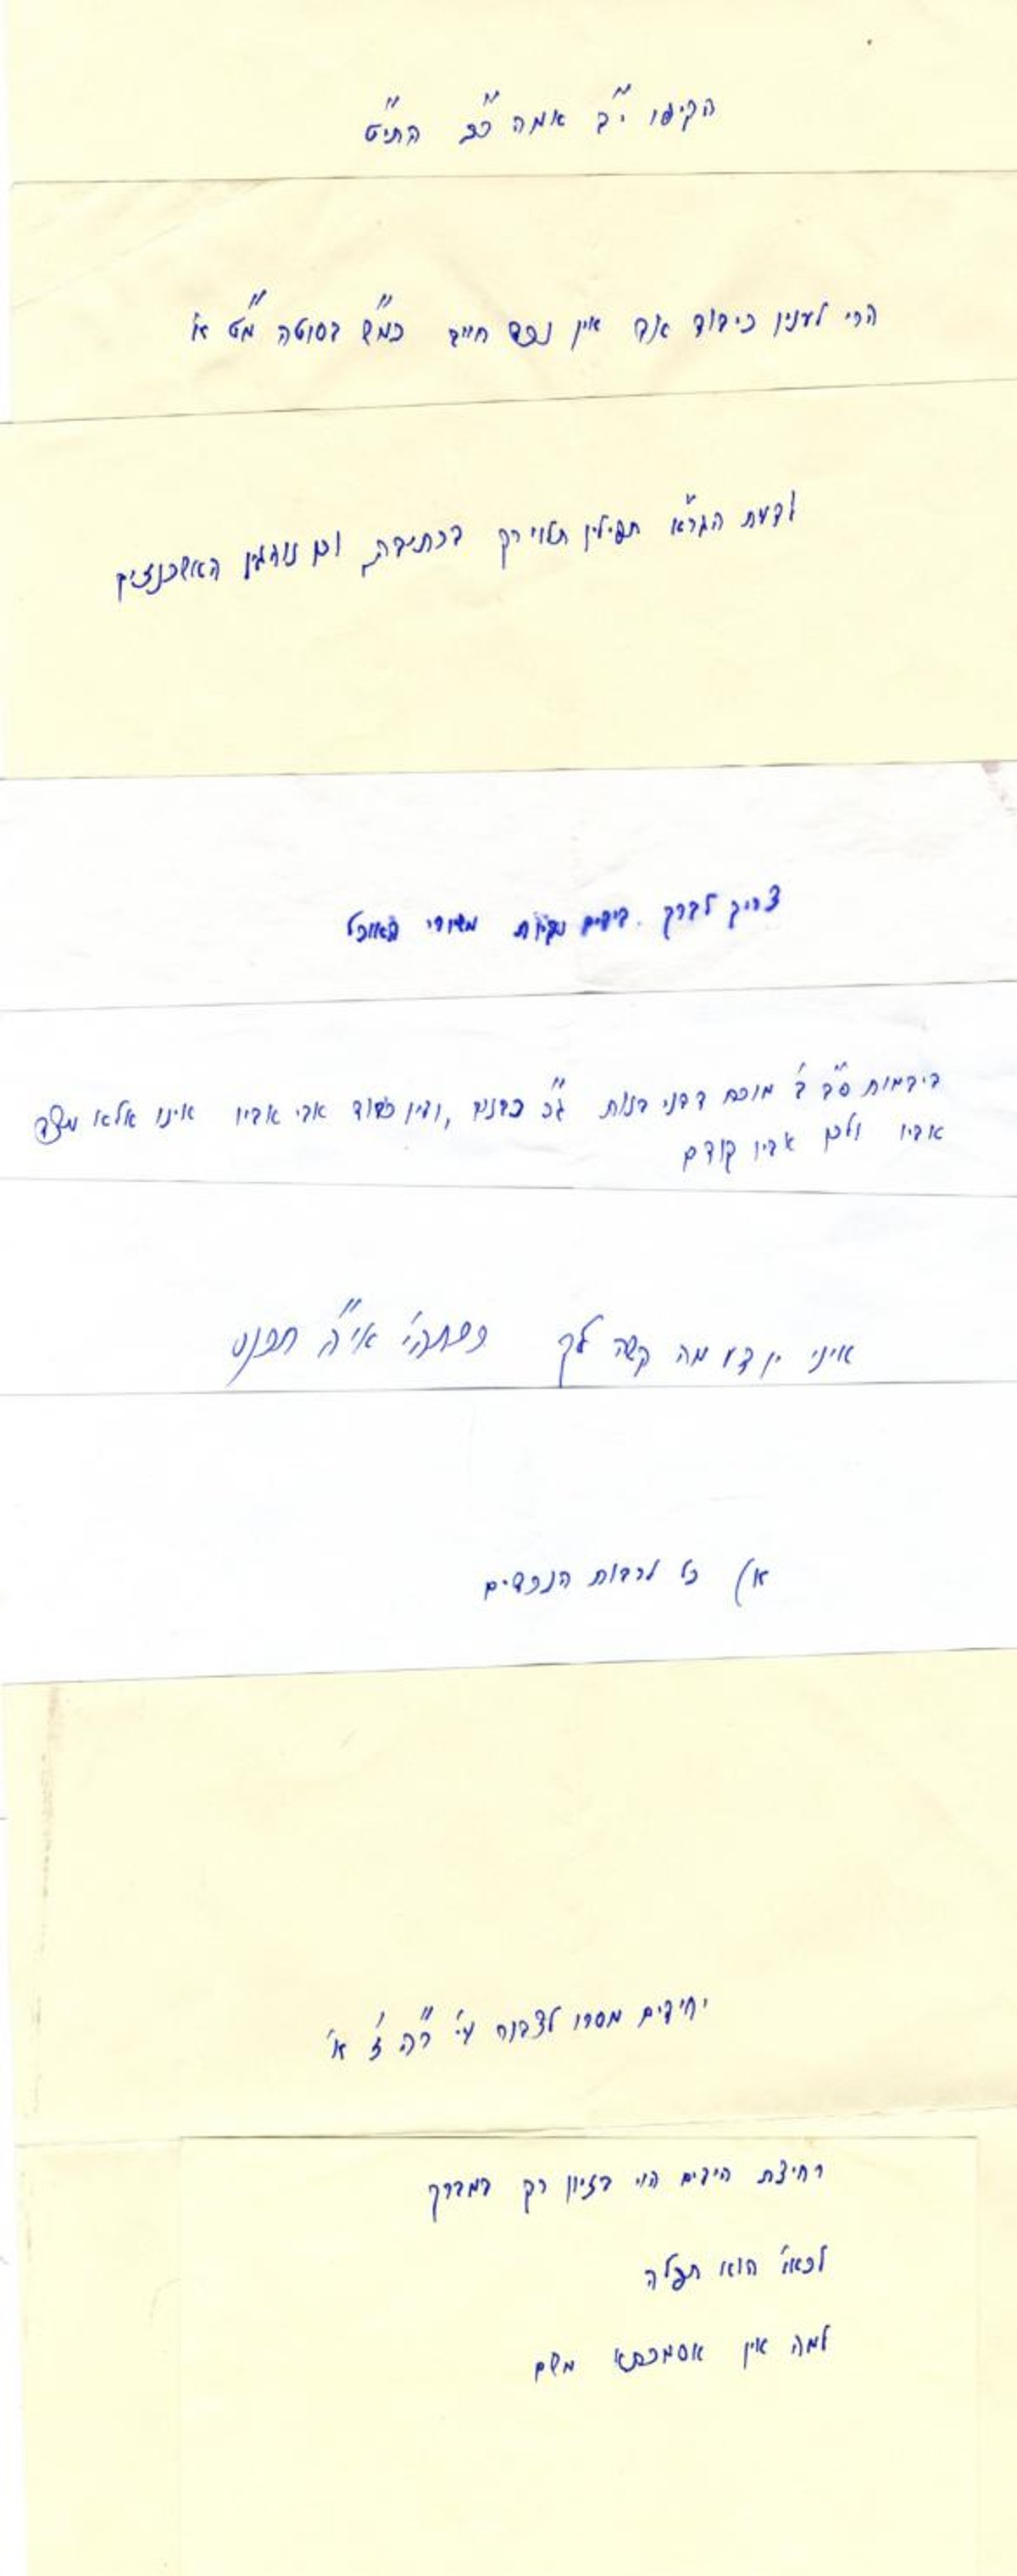 הקיפו י"ב אמה כ"ב התי"ט
הרי לענין כיבוד אב אין נכד חייב כמ"ש בסוטה מ"ט א'
לדעת הגר"א תפילין תלוי רק בכתיבה, וכן נוהגין האשכנזים
צריך לברך בידים נקיות משיורי האוכל
ביבמות ס"ב ב' מוכח דבני בנות ג"כ כבנים, ועין כבוד אבי אביו אינו אלא מצד
אביו ולכן אביו קודם
איני יודע מה קשה לך כשתהי' אי"ה תכנס
א) כל לרבות הנפשים
יחידים מסרו לצבור עי' ר"ה ז' א'
רחיצת הידים הוי בזיון רק במברך
לכאו' הוא תפלה
למה אין אסמכתא משם